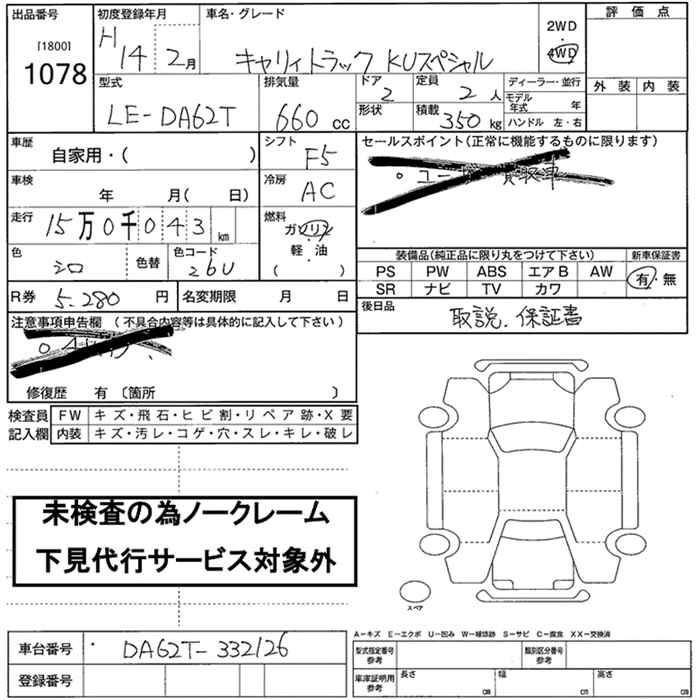 出品番号
[1800]
1078
初度登録年月
H 14 2月
車名・グレード
キャリィトラック KUスペシャル
2WD
4WD
評価点
外装 内装
型式
LE-DA62T
排気量
660 cc
ドア
2
形状
定員
2 人
積載
350 kg
ディーラー・並行
モデル年式 年
ハンドル 左・右
車歴
自家用・( )
シフト
F5
車検
年 月( 日)
冷房
AC
走行
15万0千043 km
燃料
ガソリン
軽・油
( )
色
シロ
色替
色コード
26U
R券 5.280 円
名変期限 月 日
セールスポイント(正常に機能するものに限ります)
装備品(純正品に限り丸をつけて下さい)
新車保証書
PS PW ABS エアB AW
有・無
SR ナビ TV カワ
後日品
取説.保証書
注意事項申告欄 (不具合内容等は具体的に記入して下さい)
修復歴 有 〔箇所 〕
検査員記入欄
FW キズ・飛石・ヒビ割・リペア跡・X要
内装 キズ・汚レ・コゲ・穴・スレ・キレ・破レ
未検査の為ノークレーム
下見代行サービス対象外
スペア
A-キズ E-エクボ U-凹み W-線認跡 S-サビ C-腐食 XX-交換済
車台番号
DA62T-332126
登録番号
型式指定番号 参考
類別区分番号 参考
車庫証明用 参考
長さ cm
幅 cm
高さ cm